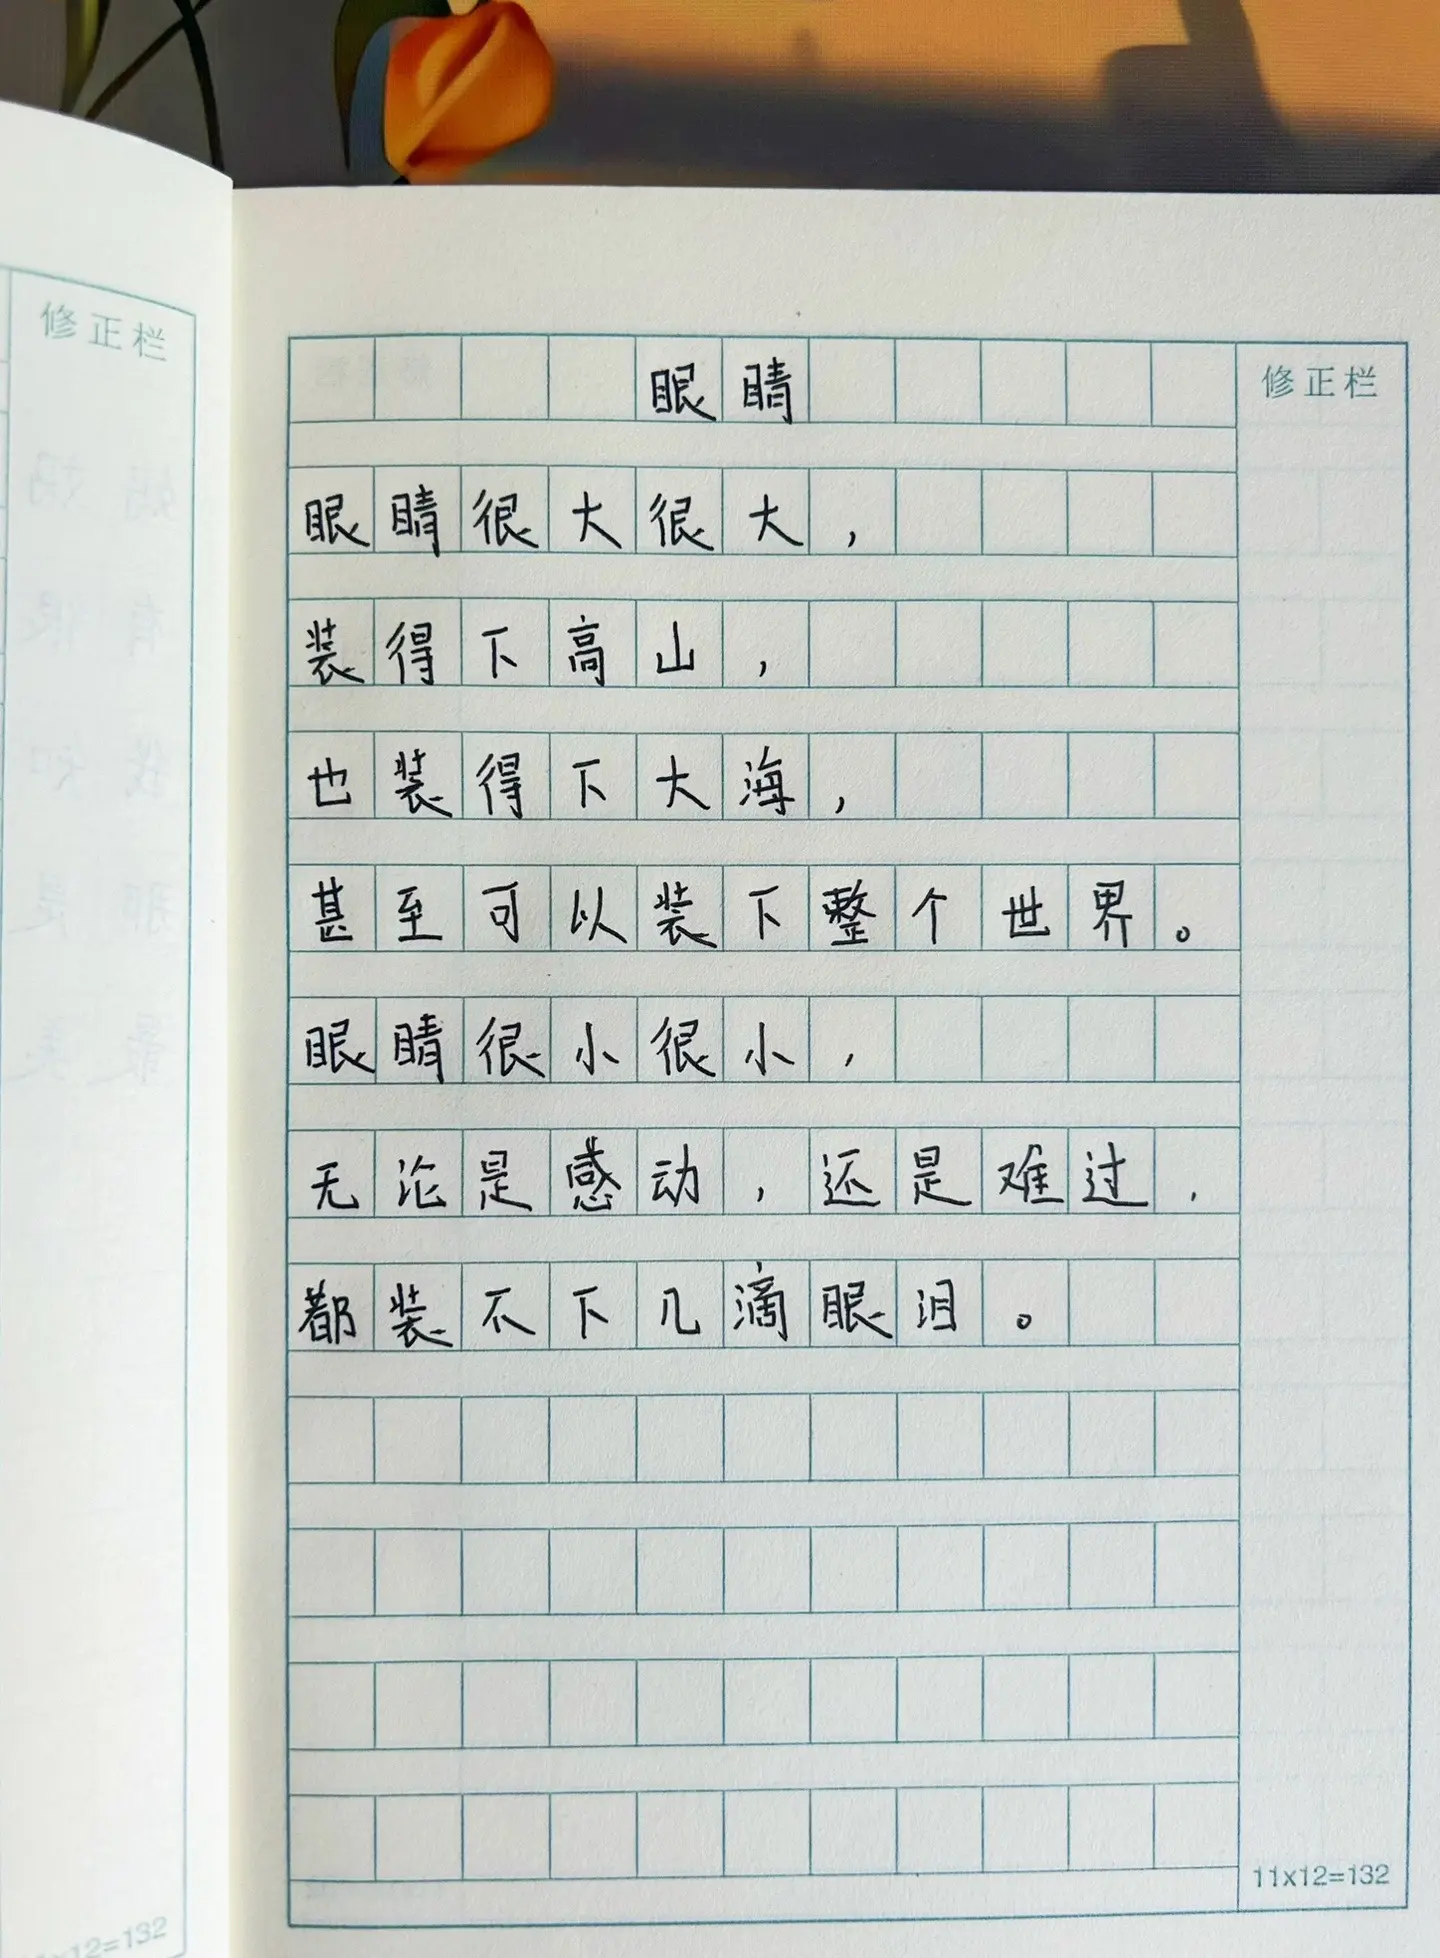 修正栏
眼睛
修正栏
眼睛很大很大，
装得下高山，
也装得下大海，
甚至可以装下整个世界。
眼睛很小很小，
无论是感动，还是难过，
都装不下几滴眼泪。
11x12=132
x12=132